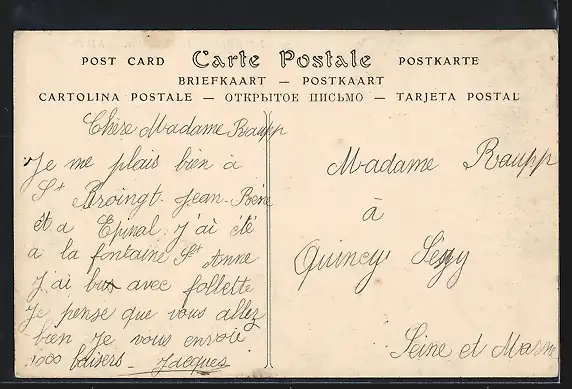 POST CARD Carte Postale POSTKARTE
BRIEFKAART — POSTKAART
CARTOLINA POSTALE — ОТКРЫТОЕ ПИСЬМО — TARJETA POSTAL
Chère Madame Raupp
Je me plais bien a
St Broingt. Jean-René
ét a Epinal. J'ai été
a la fontaine St Anne
J'ai bu avec follette
Je pense que vous allez
bien Je vous envoie
1000 baisers - Jacques
Madame Raupp
à
Quincy Ségy
Seine et Marne